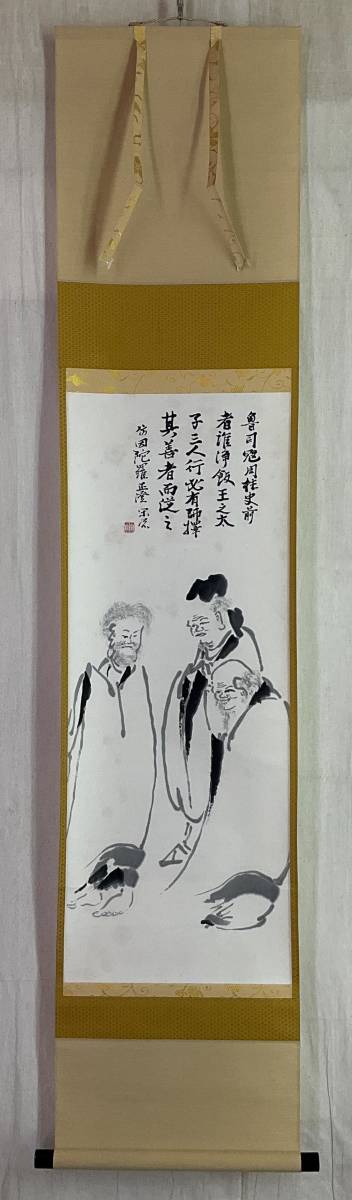 魯司寇周柱史前
者誰淨飯王之太
子三人行必有師擇
其善者而從之